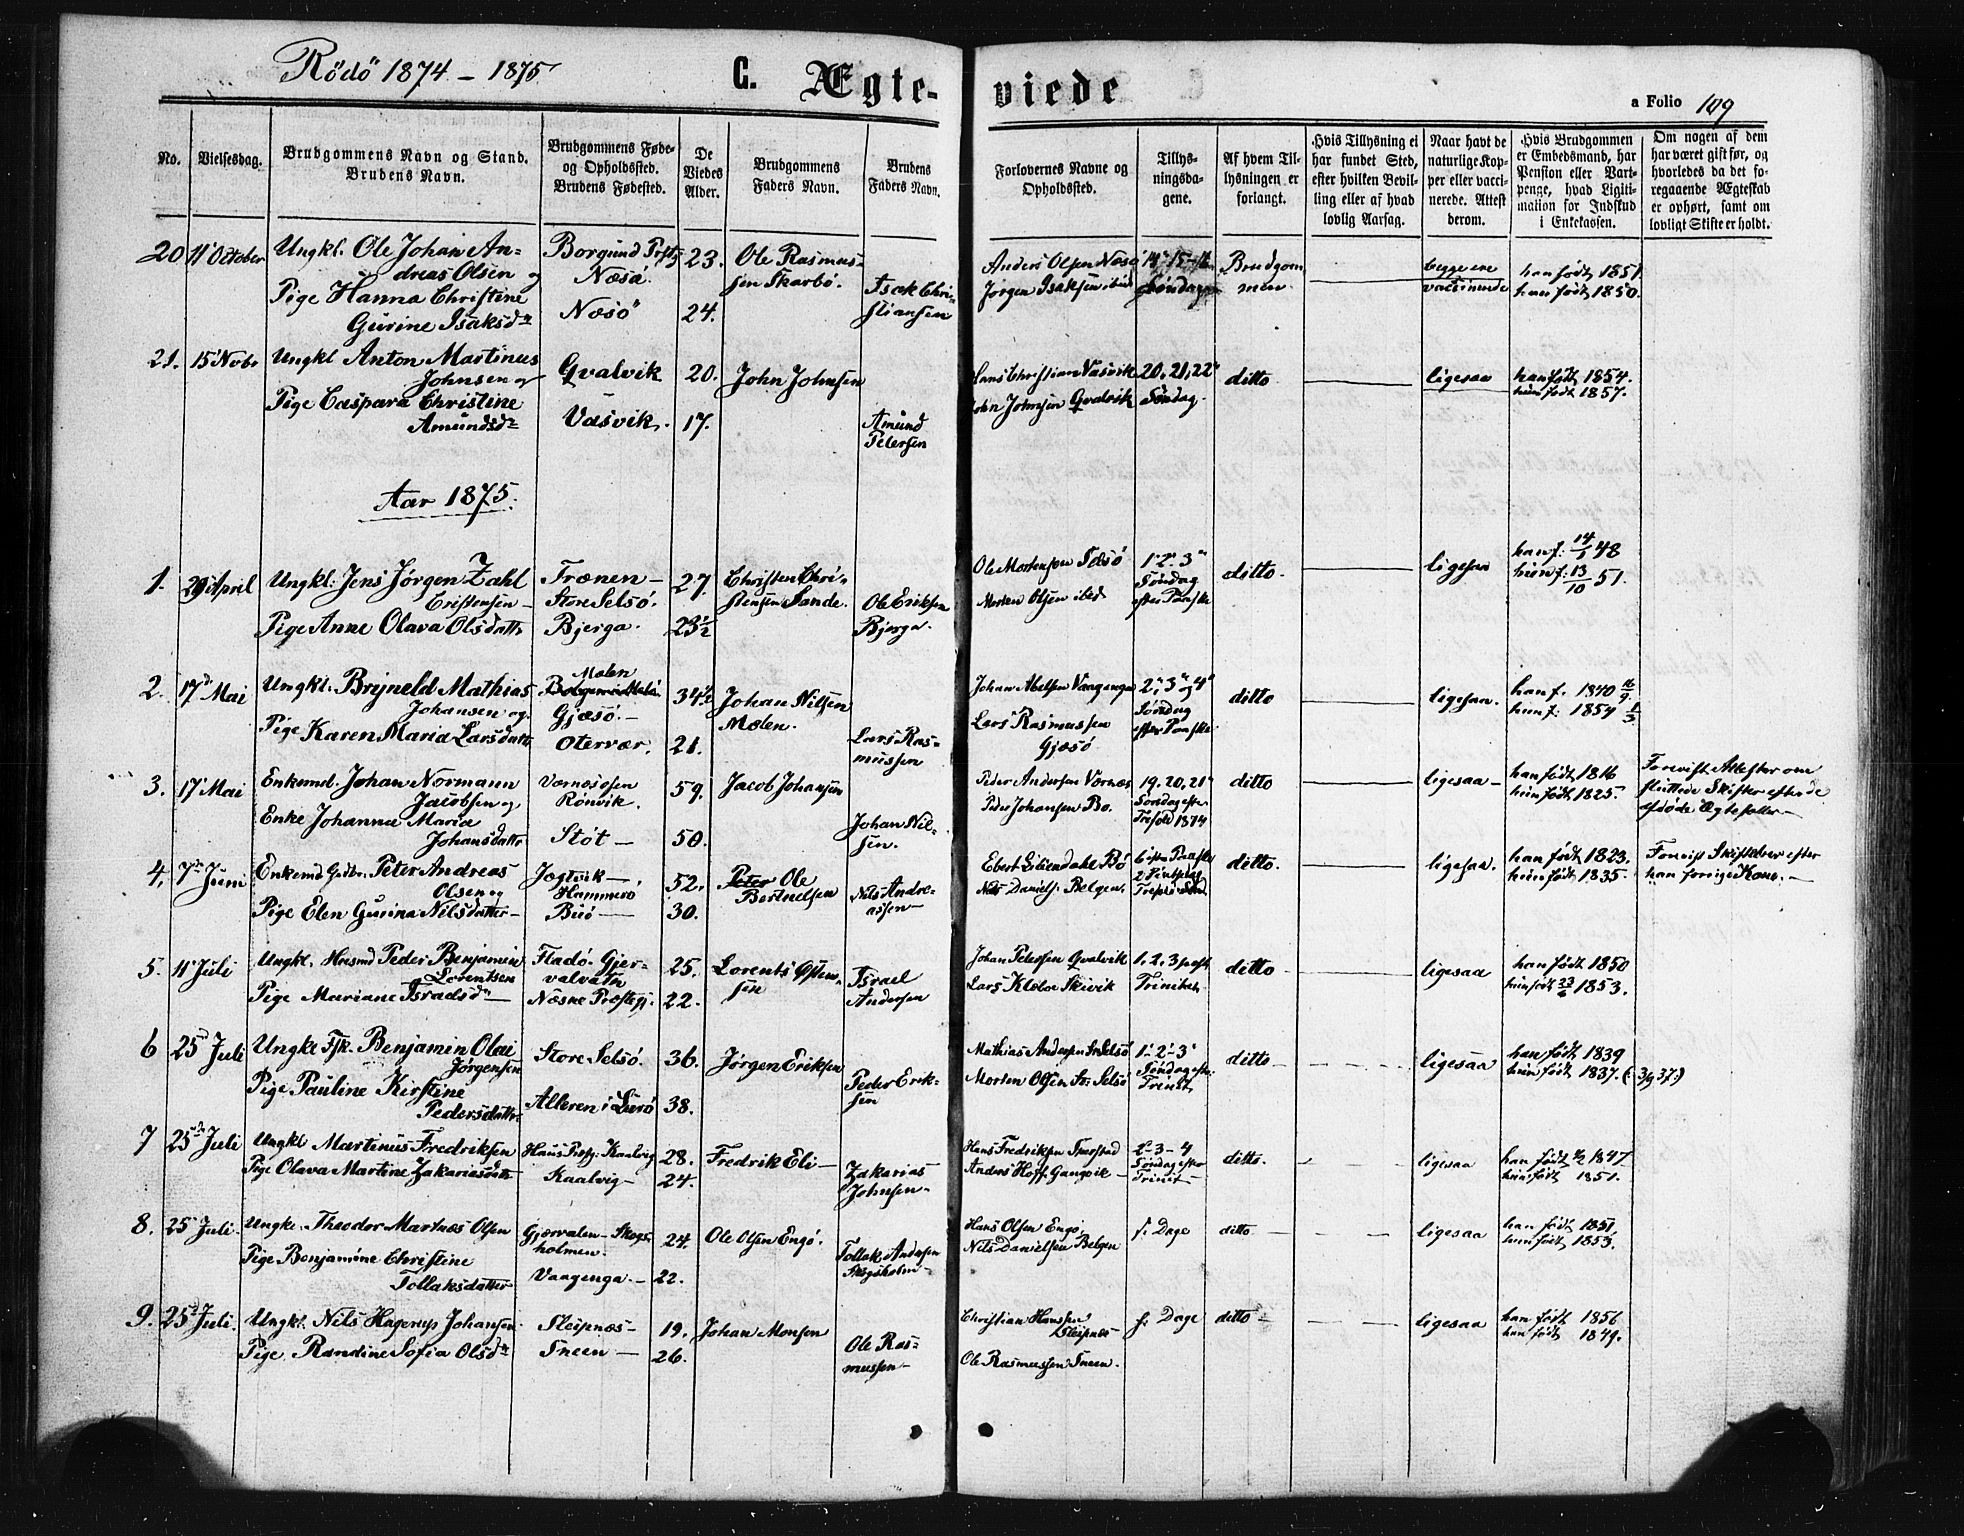 Rödö 1874 - 1875
C. Ægte-
viede
a Folio 109
No.
Vielsesdag.
Brudgommens Navn og Stand.
Brudens Navn.
Brudgommens Føde-
og Opholdssted.
Brudens Fødested.
De
Viedes
Alder.
Brudgommens
Faders Navn.
Brudens
Faders Navn.
Forlovernes Navne og
Opholdssted.
Tillys-
ningsda-
gene.
Af hvem Til-
lysningen er
forlangt.
Hvis Tillysning ei
har fundet Sted,
efter hvilken Bevil-
ling eller af hvad
lovlig Aarsag.
Naar havt de
naturlige Kop-
per eller vacci-
nerede. Attest
derom.
Hvis Brudgommen
er Embedsmand, har
Pension eller Vart-
penge, hvad Ligiti-
mation for Indskud
i Enkekassen.
Om nogen af dem
har været gift før, og
hvorledes da det fo-
regaaende Ægteskab
er ophørt, samt om
lovligt Skifte er holdt.
20 11' October Ungkl. Ole Johan An-
dreas Olsen og
Pige Hanna Christine
Gurine Isaksd
Borgund Prstg
Næsø
Næsö
23.
24.
Ole Rasmus-
sen Skarbö.
Isak Chri-
stiansen
Anders Olsen Næsö
Jørgen Isaksen ibid
14-15-16
Søndag
Brudgom
men
begge ere
vaccinerede
han født 1851.
hun født 1850.
21. 15' Nobr Ungkl Anton Martinus
Johnsen og
Pige Caspara Christine
Amundsd
Qvalvik
Vasvik.
20.
17.
John Johnsen
Amund
Petersen
Lars Christian Vasvik
John Johnsen Qvalvik
20, 21, 22
Søndag.
ditto
ligesaa
han født 1854.
hun født 1857.
Aar 1875.
1. 29 April Ungkl. Jens Jörgen Zahl
Cristensen
Pige Anne Olava Olsdattr
Trænen
Store Selsö.
Bjerga.
27.
23½
Christen Chri-
stensen Sande.
Ole Eriksen
Bjerga.
Ole Mortensen Selsö
Morten Olsen ibid
1' 2' 3'
Søndag
efter Paaske
ditto
ligesaa
han f: 14/1 48
hun f: 13/10 51.
2. 17 Mai Ungkl. Bryneld Mathias
Johansen og
Pige Karen Maria Larsdattr
Mælen
Gjæsö.
Otervær.
34½
21.
Johan Nilsen
Mælen.
Lars Ras-
mussen
Johan Abelsen Vaagenga
Lars Rasmussen
Gjæsö
2', 3' og 4'
Søndag
efter Paaske
ditto
ligesaa.
han f. 1840 16/9
hun f: 1854 1/3
3. 17' Mai Enkemd. Johan Normann
Jacobsen og
Enke Johanna Maria
Johansdattr
Værnæsosen
Rönvik.
Stöt
59.
50.
Jacob Johansen
Johan Nil-
sen.
Peder Andersen Værnæs
Peder Johansen Bo.
19. 20, 21
Søndag eftr
Trefold 1874
ditto
ligesaa
han født 1816
hun født 1825.
Forevist Attester om
sluttede Skifter efter de
afdøde Ægtefæller
4. 7 Juni Enkemd Gdbr. Peter Andreas
Olsen og
Pige Elen Gurina Nilsdatter
Jægtvik
Hammerö
Buö
52.
30.
Ole
Bertnelsen
Nils Andre-
assen
Ebert Liliendahl Bö
Nils Daniels. Belgen.
6 efter Paaske
ditto.
ligesaa.
han født 1823.
hun født 1835.
Forevist Skiftebrev efter
han forrige Kone.
5. 11' Juli Ungkl. Husmd Peder Benjamin
Lorentsen
Pige Mariane Israelsd
Fladö. Gjer-
valvatn
Næsne Præstegj.
25.
22.
Lorents Østen-
sen
Israel
Andersen
Johan Petersen Qvalvik
Lars Klæboe Skivik
1. 2. 3 post
Trinitat.
ditto
ligesaa
han født 1850
hun født 1853.
6 25 Juli Ungke Fsk. Benjamin Olai
Jørgensen
Pige Pauline Kirstine
Pedersdatter
Store Selsö.
Alteren i Lurö
36.
38.
Jørgen Eriksen
Peder Erik-
sen
Mathias Andersen St. Selsö
Morten Olsen St. Selsö
1'- 2'- 3'
Søndag eftr
Trinit.
ditto
ligesaa
han født 1839
hun født 1837. (3/9 37.)
7 25 Juli Ungkl Martinus Fredriksen
Pige Olava Martine Zakariasdattr
Hans Prstgj. Kaalvig
Kaalvig
28.
24.
Fredrik Eli
Zakarias
Johnsen
Hans Fredriksen
Anders Hoff Gangvik
2'-3-4
Søndag efter
Trinit
ditto.
ligesaa
han født 1847
hun født 1851.
8. 25' Juli. Ungke. Theodor Martnæs Olsen
Pige Benjamine Christine
Tollaksdatter
Gjærvalen - Skogs-
holmen.
Vaagenga.
24.
22.
Ole Olsen Engö.
Tollak Andersen
Skogsholm
Hans Olsen Engö
Nils Danielsen Belgen
s: Dage
ditto
ligesaa
han født 1851.
hun født 1853.
9. 25 Juli. Ungkl. Nils Hagerup Johansen
Pige Randine Sofia Olsd
Sleipnæs
Sneen
19.
26.
Johan Monsen
Ole Ras-
mussen
Christian Hansen
Sleipnæs
Ole Rasmussen Sneen.
s: Dage
ditto
ligesaa
han født 1856
hun født 1849.